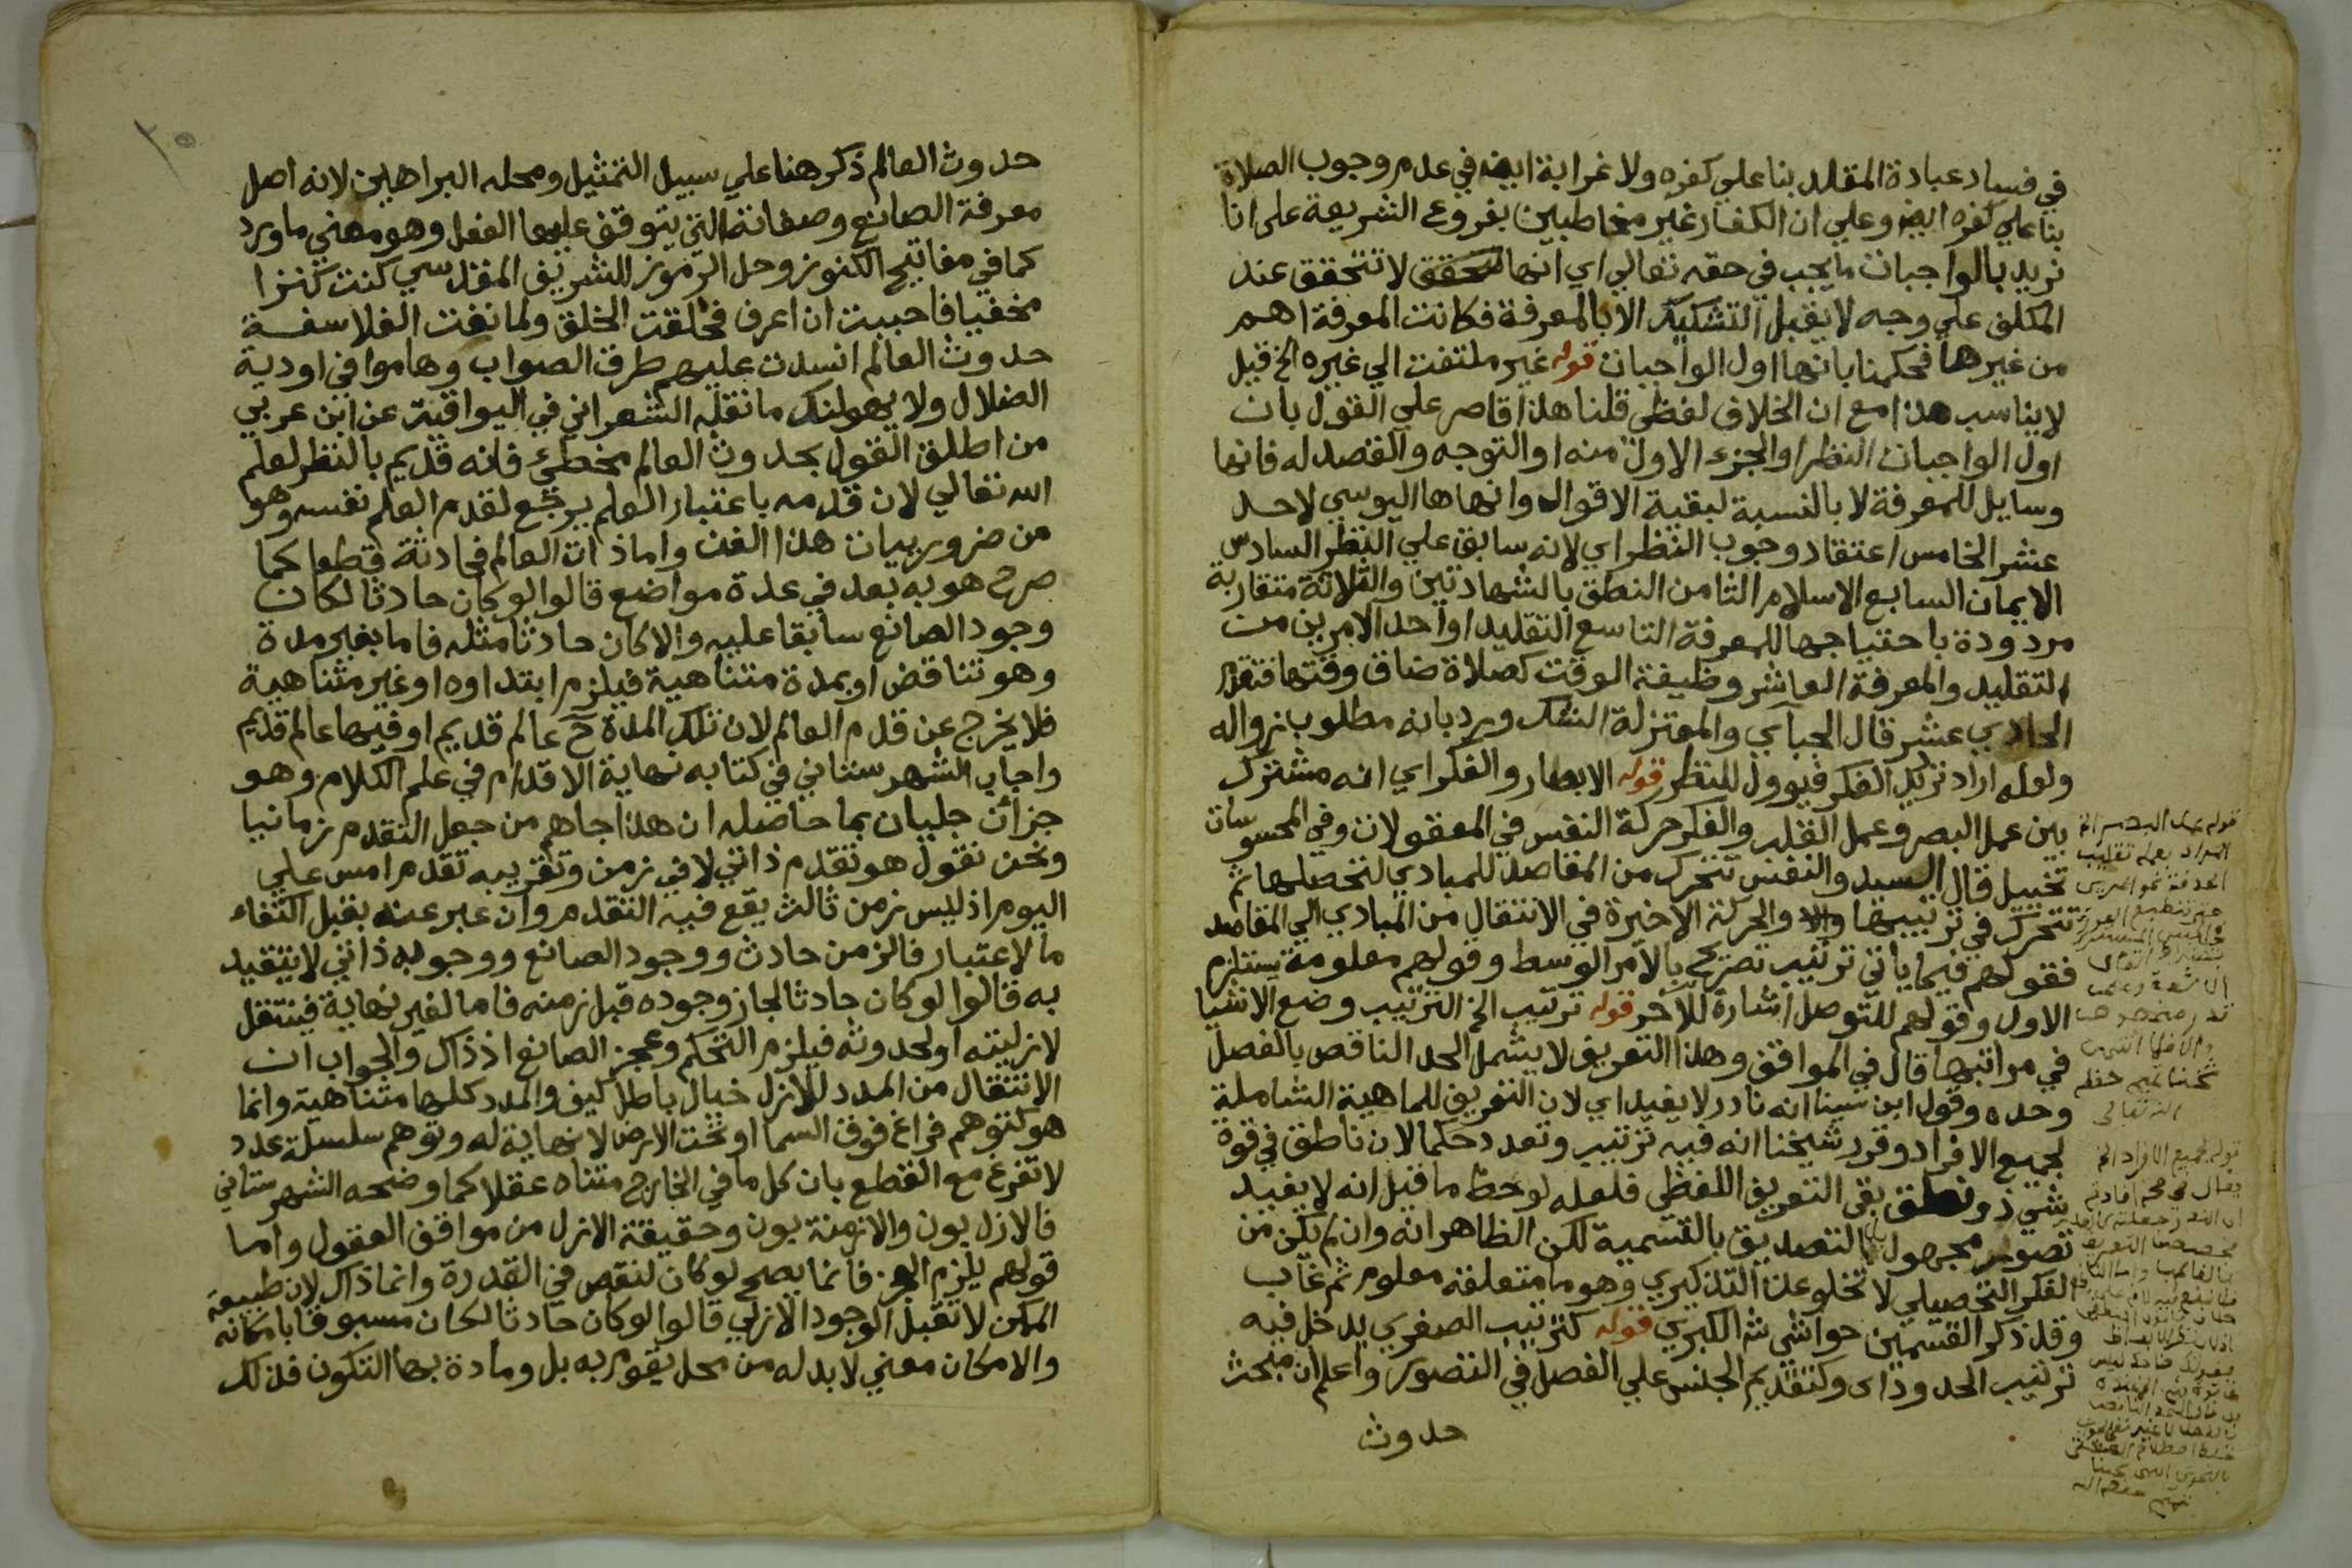 في فساد عبادة المقلد بنا علي كفره ولا غرابة ايضا في عدم وجوب الصلاة
بنا علي كفره ايضا وعلي ان الكفار غير مخاطبين بفروع الشريعة علي انا
نريد بالواجبات ما يجب في حقه تعالي اي انها تتحقق لا تتحقق عند
المكلف علي وجه لا يقبل التشكيك الا بالمعرفة فكانت المعرفة اهم
من غيرها فحكمنا بانها اول الواجبات قوله غير ملتفت الي غيره الخ قيل
لا يناسب هذا مع ان الخلاف لفظي قلنا هذا قاصر علي القول بان
اول الواجبات النظر او الجزء الاول منه او التوجه والقصد له فانها
وسايل للمعرفة لا بالنسبة لبقية الاقوال وانهاها اليوسي لاحد
عشر الخامس اعتقاد وجوب النظر اي لانه سابق علي النظر السادس
الايمان السابع الاسلام الثامن النطق بالشهادتين والثلاثة متقاربة
مردودة باحتياجها للمعرفة التاسع التقليد او احد الامرين من
التقليد والمعرفة العاشر وظيفة الوقت كصلاة ضاق وقتها فتقدم
الحادي عشر قال الجباي والمعتزلة الشك ورد بانه مطلوب زواله
ولعله اراد ترتك الفكر فيوول للنظر قوله الابصار والفكر اي انه مشترك
بين عمل البصر وعمل القلب والفكر حركة النفس في المعقولات وفي المحسوسات
تخييل قال السيد والنفس تتحرك من المقاصد للمبادي لتحصلها ثم
تتحرك في ترتيبها والحركة الاخيرة في الانتقال من المبادي الي المقاصد
فقولهم فيما ياتي ترتيب تصريح بالامر الوسط وقولهم معلومة يستلزم
الاول وقولهم للتوصل اشارة للاخر قوله ترتيب الخ الترتيب وضع الاشيا
في مراتبها قال في المواقف وهذا التعريف لا يشمل الحد الناقص بالفصل
وحده وقول ابن سينا انه نادر لا يفيد اي لان التعريف للماهية الشاملة
لجميع الافراد وقرر شيخنا انه فيه ترتيب وتعدد حكما لان ناطق في قوة
شي ذو نطق بقي التعريف اللفظي فلعله لوحظ ما قيل انه لا يفيد
تصوير مجهول بل التصديق بالتسمية لكن الظاهر انه وان لم يكن من
الفكر التحصيلي لا تخلو عن التذكيري وهو ما متعلقه معلوم ثم غاب
وقد ذكر القسمين حواشي ش الكبري قوله كترتيب الصغري يدخل فيه
ترتيب الحدود اي وكتقديم الجنس علي الفصل في التصور واعلم ان مبحث
حدوث
قوله عمل البصر الخ
المراد بعمله تقليب
الحدقة نحو المرئي
شيخنا تميم حفظه
الله تعالى
قوله لجميع الافراد الخ
حدوث العالم ذكر هنا علي سبيل التمثيل ومحله البراهين لانه اصل
معرفة الصانع وصفاته التي يتوقف عليها الفعل وهو معني ما ورد
كما في مفاتيح الكنوز وحل الرموز للشريف المقدسي كنت كنزا
مخفيا فاحببت ان اعرف فخلقت الخلق ولما نفت الفلاسفة
حدوث العالم انسدت عليهم طرق الصواب وهاموا في اودية
الضلال ولا يهولنك ما نقله الشعراني في اليواقيت عن ابن عربي
من اطلق القول بحدوث العالم مخطئ فانه قديم بالنظر لعلم
الله تعالي لان قدمه باعتبار العلم يرجع لقدم العلم نفسه وهو
من ضروريات هذا الفن واما ذات العالم فحادثة قطعا كما
صرح هو به بعد في عدة مواضع قالوا لو كان حادثا لكان
وجود الصانع سابقا عليه والا كان حادثا مثله فاما بغير مدة
وهو تناقض او بمدة متناهية فيلزم ابتداوه او غير متناهية
فلا يخرج عن قدم العالم لان تلك المدة ح عالم قديم او فيها عالم قديم
واجاب الشهرستاني في كتابه نهاية الاقدام في علم الكلام وهو
جزآن جليان بما حاصله ان هذا جاهم من جعل التقدم زمانيا
ونحن نقول هو تقدم ذاتي لا في زمن وتقريبه تقدم امس علي
اليوم اذ ليس زمن ثالث يقع فيه التقدم وان عبر عنه بقبل اكتفاء
ما لاعتبار فالزمن حادث ووجود الصانع ووجوبه ذاتي لا يتقيد
به قالوا لو كان حادثا لجاز وجوده قبل زمنه فاما لغير نهاية فينتقل
لازليته او لحدوثه فيلزم التحكم وعجز الصانع اذ ذاك والجواب ان
الانتقال من المدد للازل خيال باطل كيف والمدد كلها متناهية وانما
هو كتوهم فراغ فوق السما او تحت الارض لا نهاية له وتوهم سلسلة عدد
لا تفرغ مع القطع بان كل ما في الخارج متناه عقلا كما وضحه الشهرستاني
فالازل بون والازمنة بون وحقيقة الازل من مواقف العقول واما
قولهم يلزم العجز فانما يصح لو كان لنقص في القدرة وانما ذاك لان طبيعة
الممكن لا تقبل الوجود الازلي قالوا لو كان حادثا لكان مسبوقا بامكانه
والامكان معني لا بد له من محل يقوم به بل ومادة بها التكون فذلك